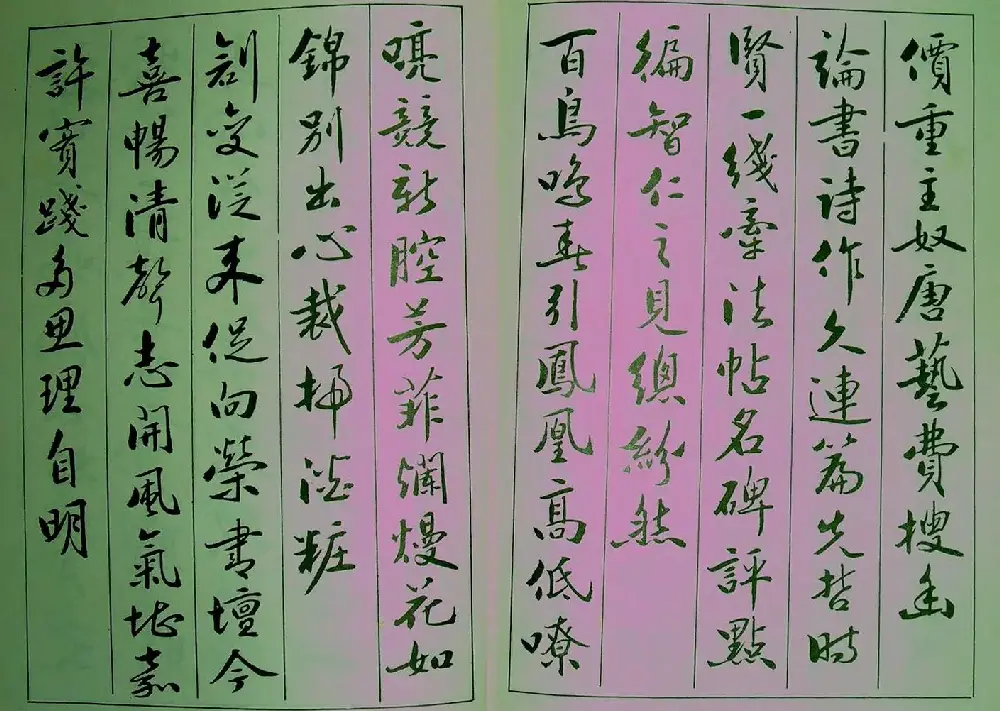 價重主奴唐藝費搜幽
論書詩作久連篇先哲時
賢一綫牽法帖名碑評點
徧智仁之見總紛然
百鳥鳴春引鳳凰高低嘹
喨競新腔芳菲爛熳花如
錦別出心裁掃澁粧
創變從来促向榮書壇今
喜暢清聲志開風氣堪嘉
許實踐多思理自明